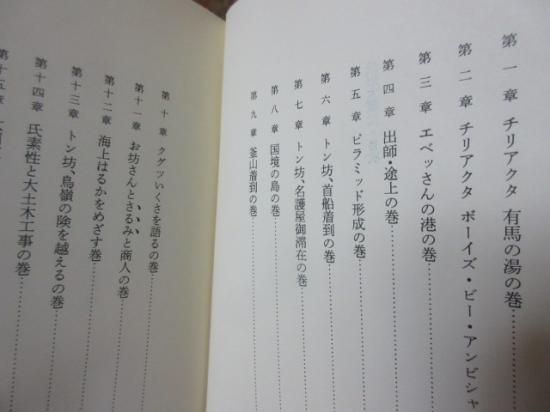 第一章 チリアクタ 有馬の湯の巻
第二章 チリアクタ ボーイズ・ビー・アンビシャ
第三章 エベッさんの港の巻
第四章 出師・途上の巻
第五章 ピラミッド形成の巻
第六章 トン坊、首船着到の巻
第七章 トン坊、名護屋御滞在の巻
第八章 国境の島の巻
第九章 釜山着到の巻
第十章 クグツいくさを語るの巻
第十一章 お坊さんとさるみと商人の巻
第十二章 海上はるかをめざす巻
第十三章 トン坊、鳥嶺の険を越えるの巻
第十四章 氏素性と大土木工事の巻
第十五章